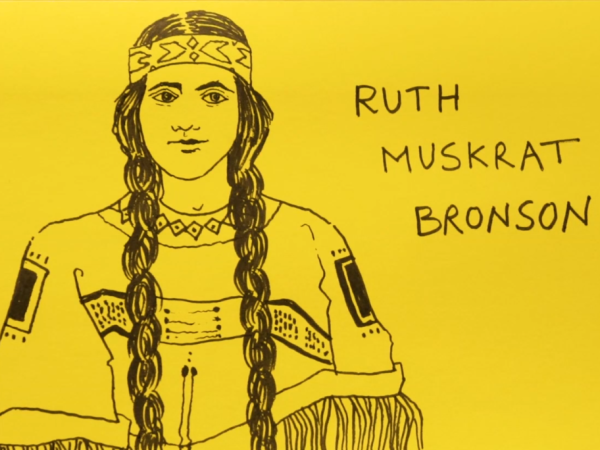 RUTH
MUSKRAT
BRONSON